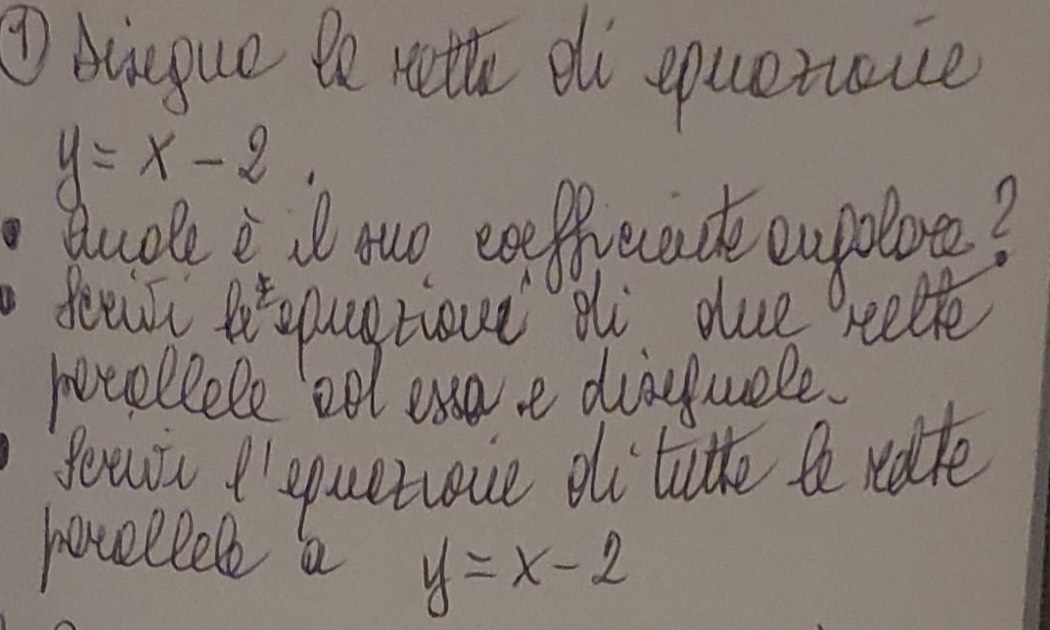 ① Disegna la retta di equazione
y = x - 2 .
• Quale è il suo coefficiente angolare?
• Scrivi le equazioni di due rette
parallele ad essa e disegnale.
• Scrivi l'equazione di tutte le rette
parallele a y = x - 2